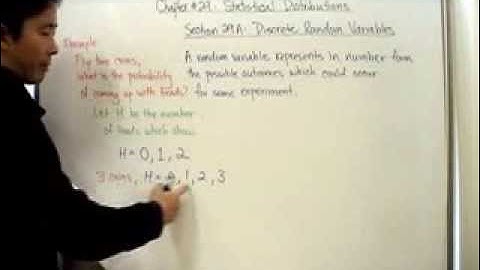 Chapter #29: Statistical Distributions
Section 29A: Discrete Random Variables
Example:
Flip two coins,
what is the probability
of coming up with heads?
A random variable represents in number form
the possible outcomes which could occur
for some experiment.
Let H be the number
of heads which show
H = 0, 1, 2
3 coins, H = 0, 1, 2, 3